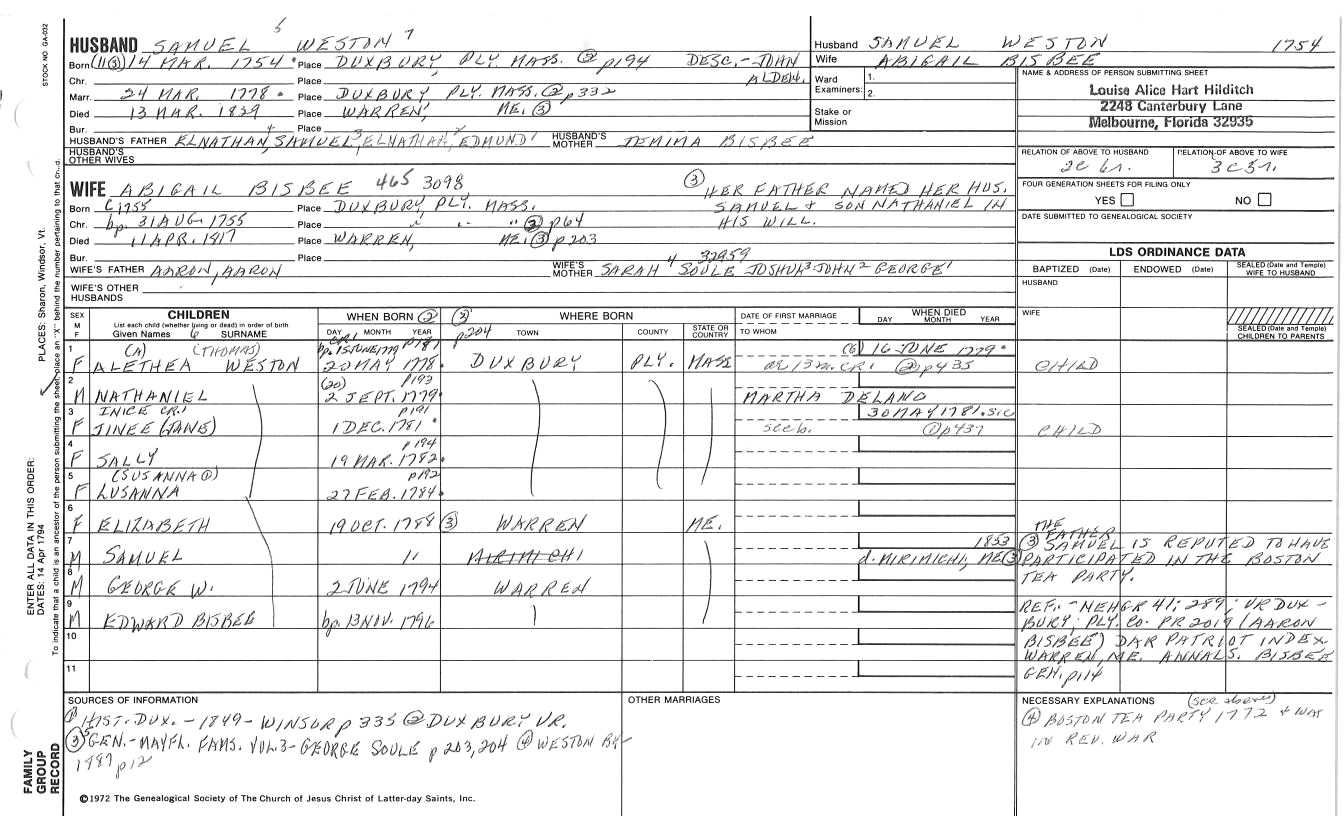 STOCK NO GA-032
HUSBAND SAMUEL 5 WESTON 7
Born (11③) 14 MAR. 1754 Place DUXBURY, PLY. MASS. ② p194 DESC.- JOHN ALDEN.
Chr. Place
Marr. 24 MAR. 1778 Place DUXBURY PLY. MASS. ② p332
Died 13 MAR. 1839 Place WARREN, ME. ③
Bur. Place
HUSBAND'S FATHER ELNATHAN, 4 SAMUEL, 3 ELNATHAN, 2 EDMUND 1 HUSBAND'S MOTHER JEMIMA BISBEE
HUSBAND'S OTHER WIVES
Husband SAMUEL WESTON 1754
Wife ABIGAIL BISBEE
Ward Examiners: 1. 2.
Stake or Mission
NAME & ADDRESS OF PERSON SUBMITTING SHEET
Louise Alice Hart Hilditch
2248 Canterbury Lane
Melbourne, Florida 32935
RELATION OF ABOVE TO HUSBAND RELATION OF ABOVE TO WIFE
2C 6r. 3C 5r.
FOUR GENERATION SHEETS FOR FILING ONLY
YES NO
DATE SUBMITTED TO GENEALOGICAL SOCIETY
WIFE ABIGAIL BISBEE 465 3098
③ HER FATHER NAMED HER HUS. SAMUEL & SON NATHANIEL IN HIS WILL.
Born C1755 Place DUXBURY PLY. MASS.
Chr. bp. 31 AUG. 1755 Place " " " ② p64
Died 11 APR. 1817 Place WARREN, ME. ③ p203
Bur. Place
WIFE'S FATHER AARON, AARON WIFE'S MOTHER SARAH 4 SOULE 32959 JOSHUA 3 JOHN 2 GEORGE 1
WIFE'S OTHER HUSBANDS
LDS ORDINANCE DATA
BAPTIZED (Date) ENDOWED (Date) SEALED (Date and Temple) WIFE TO HUSBAND
HUSBAND
WIFE
SEALED (Date and Temple) CHILDREN TO PARENTS
SEX M F CHILDREN List each child (whether living or dead) in order of birth Given Names 6 SURNAME
WHEN BORN ② DAY MONTH YEAR
② p204 WHERE BORN TOWN COUNTY STATE OR COUNTRY
DATE OF FIRST MARRIAGE TO WHOM
WHEN DIED DAY MONTH YEAR
1 (A) (THOMAS) CR1 bp. 15 JUNE 1779 p187 (6) 16 JUNE 1779
F ALETHEA WESTON 20 MAY 1778 DUXBURY PLY. MASS ae 13 m. CR1 ② p435 CHILD
2 (20) p193
M NATHANIEL 2 SEPT. 1779 MARTHA DELANO
3 INICE CR1 p191 30 MAY 1781 sic
F JINEE (JANE) 1 DEC. 1781 see b. ② p437 CHILD
4 p194
F SALLY 19 MAR. 1782
5 (SUSANNA ①) p192
F LUSANNA 27 FEB. 1784
6
F ELIZABETH 19 OCT. 1788 ③ WARREN ME.
7 1853
M SAMUEL " MIRIMICHI d. MIRIMICHI, ME ③
8
M GEORGE W. 2 JUNE 1794 WARREN
9
M EDWARD BISBEE bp. 13 NOV. 1796
10
11
③ THE FATHER SAMUEL IS REPUTED TO HAVE
PARTICIPATED IN THE BOSTON
TEA PARTY.
REF.- NEHGR 41; 289; VR DUX-
BURY; PLY. CO. PR 2019 (AARON
BISBEE) DAR PATRIOT INDEX
WARREN, ME. ANNALS. BISBEE
GEN. p114
SOURCES OF INFORMATION
① HIST. DUX. - 1849 - WINSOR p 335 ② DUXBURY VR.
③ 5 GEN. - MAYFL. FAMS. VOL. 3 - GEORGE SOULE p 203, 204 ④ WESTON BK
1987 p12
OTHER MARRIAGES
NECESSARY EXPLANATIONS (see above)
④ BOSTON TEA PARTY 1772 & WAS
IN REV. WAR
©1972 The Genealogical Society of The Church of Jesus Christ of Latter-day Saints, Inc.
FAMILY GROUP RECORD
ENTER ALL DATA IN THIS ORDER:
DATES: 14 Apr 1794
PLACES: Sharon, Windsor, Vt.
To indicate that a child is an ancestor of the person submitting the sheet, place an "X" behind the number pertaining to that child.